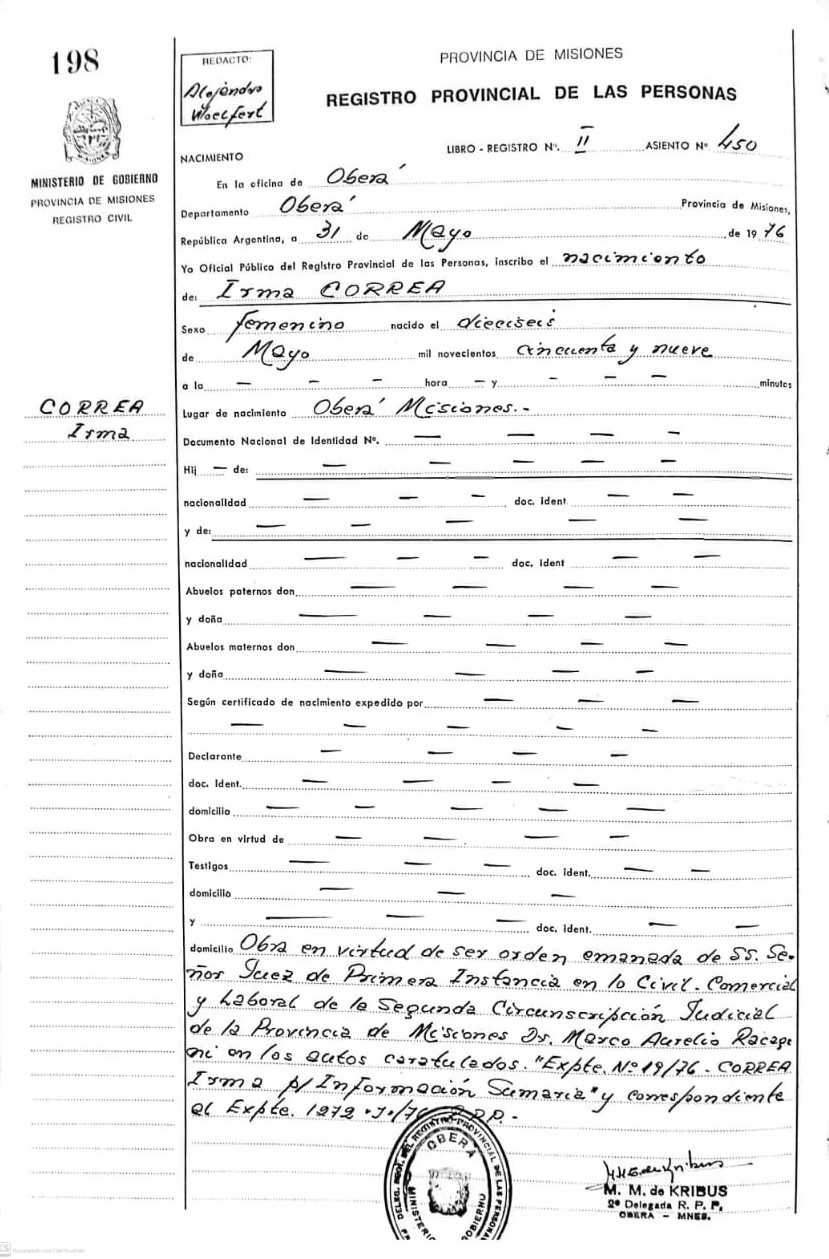 198
REDACTO:
Alejandro
Woelfert
PROVINCIA DE MISIONES
REGISTRO PROVINCIAL DE LAS PERSONAS
MINISTERIO DE GOBIERNO
PROVINCIA DE MISIONES
REGISTRO CIVIL
NACIMIENTO
LIBRO - REGISTRO Nº. II ASIENTO Nº 450
En la oficina de Oberá
Departamento Oberá Provincia de Misiones,
República Argentina, a 31 de Mayo de 19 76
Yo Oficial Público del Registro Provincial de las Personas, inscribo el nacimiento
de: Irma CORREA
Sexo femenino nacido el dieciseis
de Mayo mil novecientos cincuenta y nueve
a la — — — hora — y — — — minutos
CORREA
Irma
Lugar de nacimiento Oberá Misiones.-
Documento Nacional de Identidad Nº. — — — —
Hij — de: — — — — —
nacionalidad — — — doc. ident — —
y de: — — — — —
nacionalidad — — — doc. ident — —
Abuelos paternos don — — — —
y doña — — — —
Abuelos maternos don — — — —
y doña — — — —
Según certificado de nacimiento expedido por — — —
— — — — —
Declarante — — — —
doc. ident. — — — —
domicilio — — — — —
Obra en virtud de — — — —
Testigos — — — doc. ident. — —
domicilio — — —
y — — — doc. ident. — —
domicilio Obra en virtud de ser orden emanada de SS. Se-
ñor Juez de Primera Instancia en lo Civil. Comercial
y Laboral de la Segunda Circunscripción Judicial
de la Provincia de Misiones Dr. Marco Aurelio Racagni
en los autos caratulados. "Expte. Nº 19/76 - CORREA
Irma p/ Información Sumaria" y correspondiente
al Expte. 1272
OBERA
MINISTERIO GOBIERNO
M. M. de KRIBUS
2ª Delegada R. P. P.
OBERA - MNES.